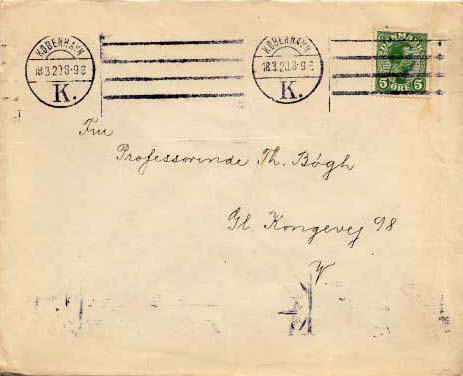 KØBENHAVN KØBENHAVN DANMARK
18.3.20.8-9E 18.3.20.8-9E
K. K. 5 ØRE 5
Fru
Professorinde Th. Bögh
Gl. Kongevej 98
V.